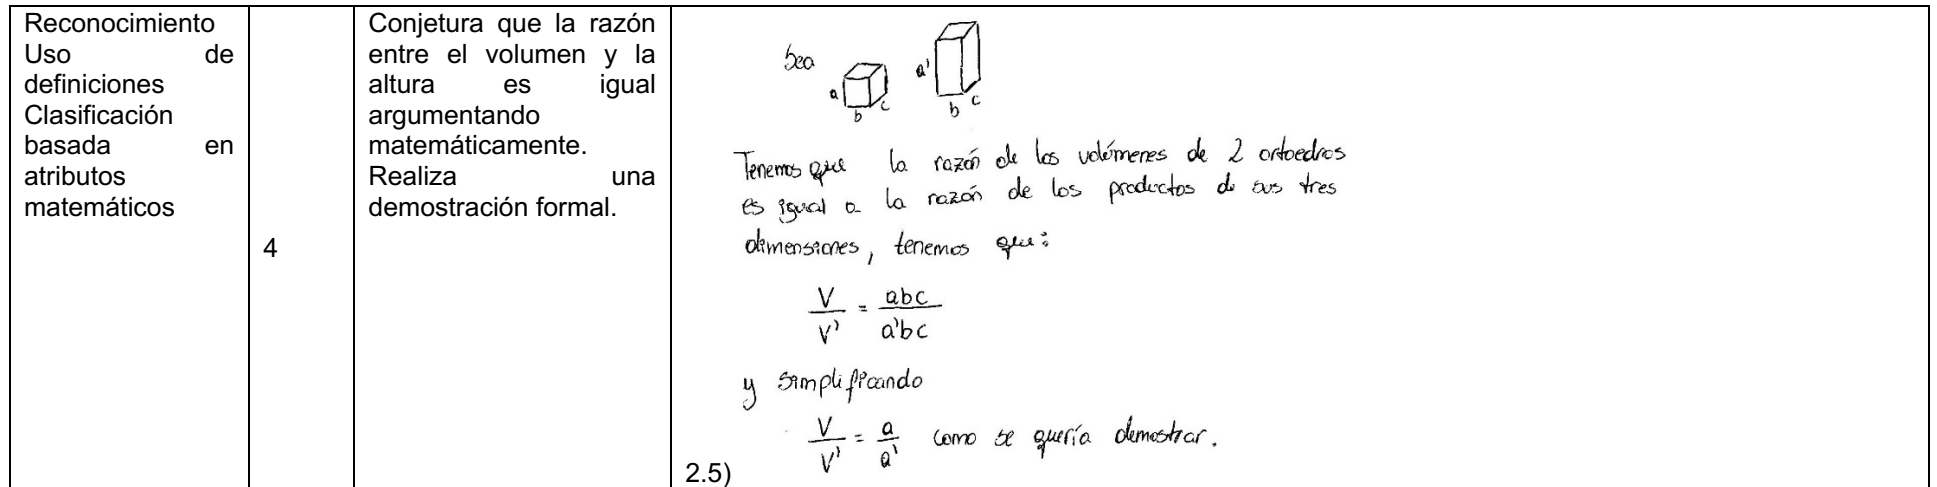 Reconocimiento
Uso de
definiciones
Clasificación
basada en
atributos
matemáticos
4
Conjetura que la razón
entre el volumen y la
altura es igual
argumentando
matemáticamente.
Realiza una
demostración formal.
Sea
a b c a' b c
Tenemos que la razón de los volúmenes de 2 ortoedros
es igual a la razón de los productos de sus tres
dimensiones, tenemos que:
V/V' = abc/a'bc
y simplificando
V/V' = a/a' como se quería demostrar.
2.5)